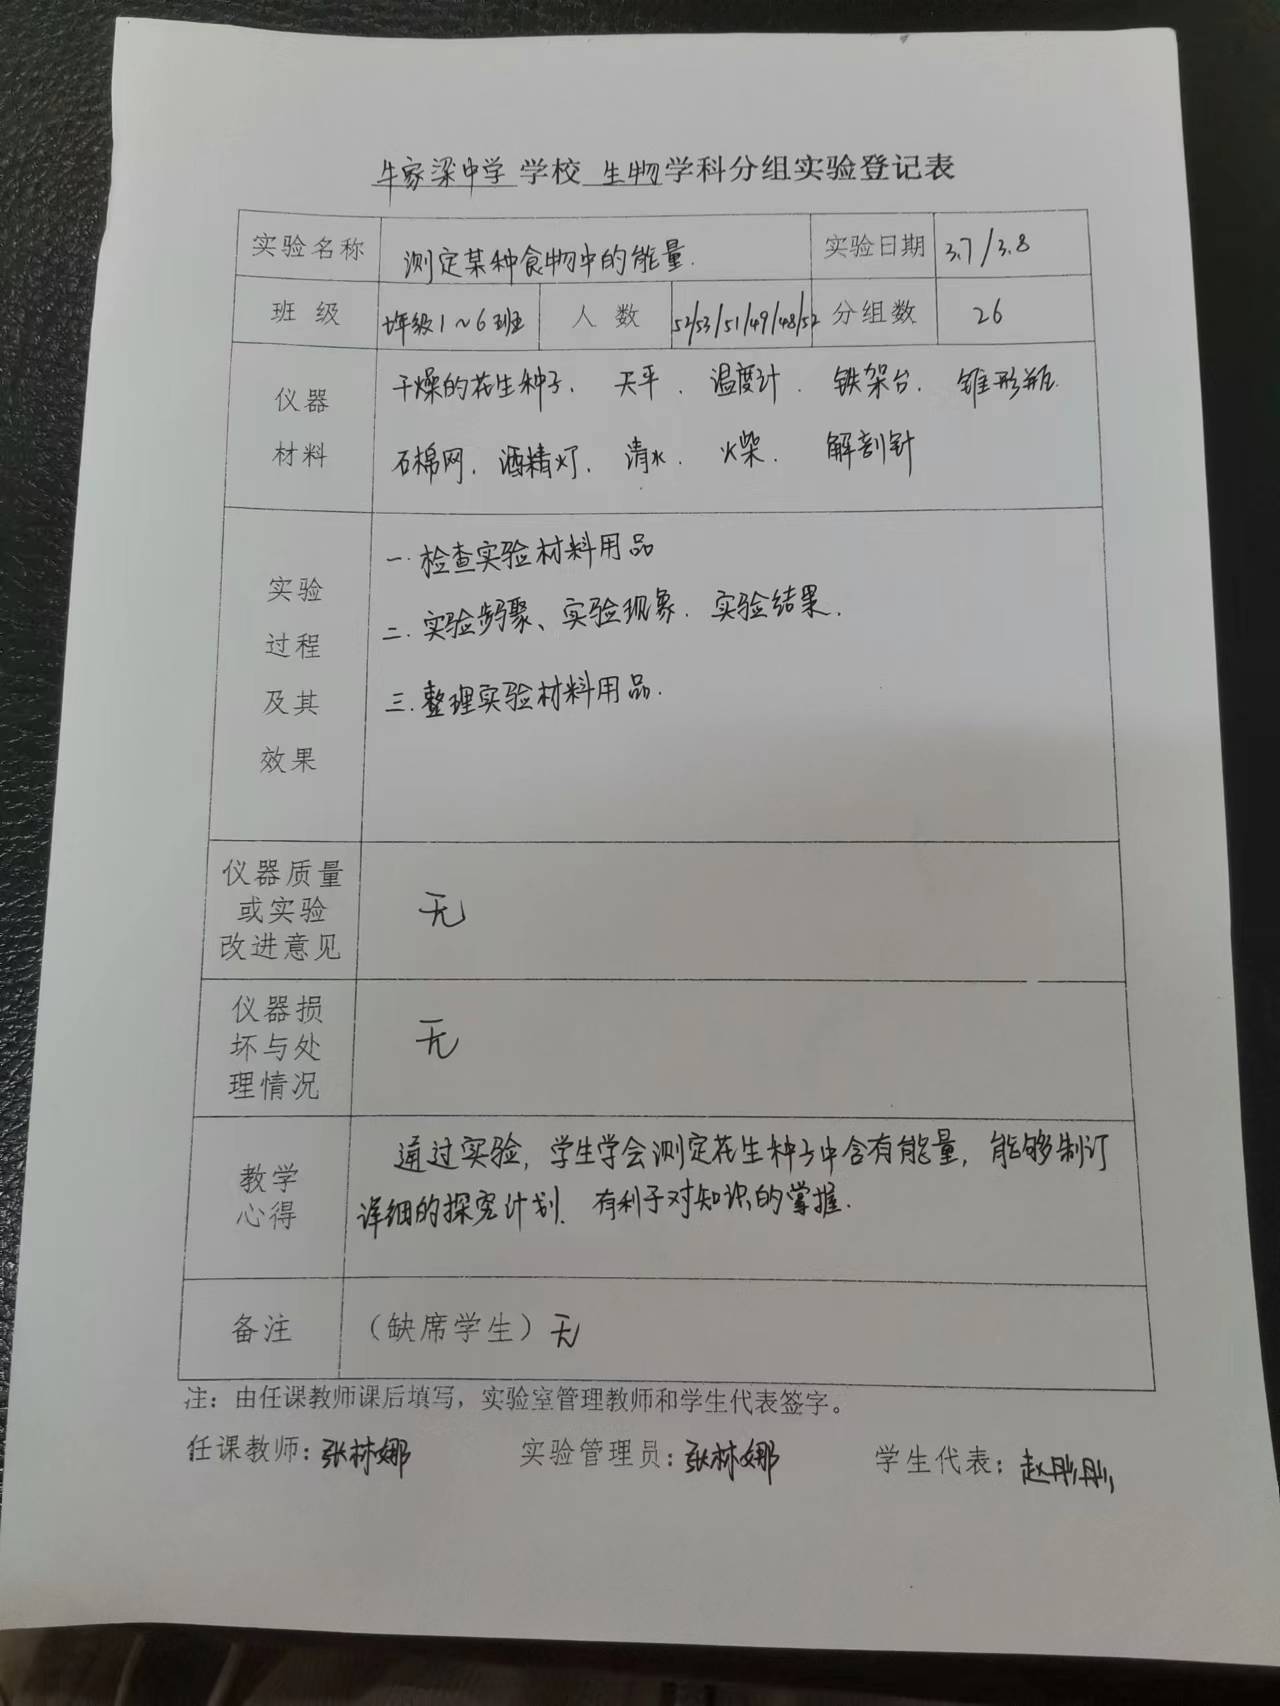 牛家梁中学 学校 生物 学科分组实验登记表
实验名称 测定某种食物中的能量. 实验日期 3.7/3.8
班 级 七年级1~6班 人 数 52/53/51/49/48/52 分组数 26
仪器 干燥的花生种子. 天平. 温度计. 铁架台. 锥形瓶.
材料 石棉网. 酒精灯. 清水. 火柴. 解剖针
一. 检查实验材料用品
实验
二. 实验步骤、实验现象. 实验结果.
过程
三. 整理实验材料用品.
及其
效果
仪器质量
或实验 无
改进意见
仪器损
坏与处 无
理情况
通过实验, 学生学会测定花生种子中含有能量, 能够制订
教学
详细的探究计划. 有利于对知识的掌握.
心得
备注 （缺席学生）无
注：由任课教师课后填写，实验室管理教师和学生代表签字。
任课教师：张林娜 实验管理员：张林娜 学生代表：赵彤彤